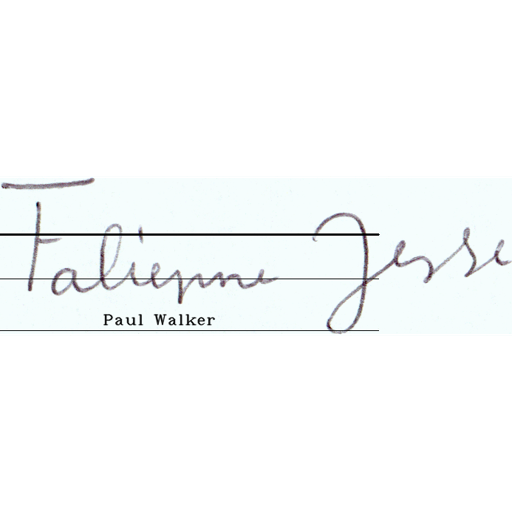 Fabienne Jesse
Paul Walker